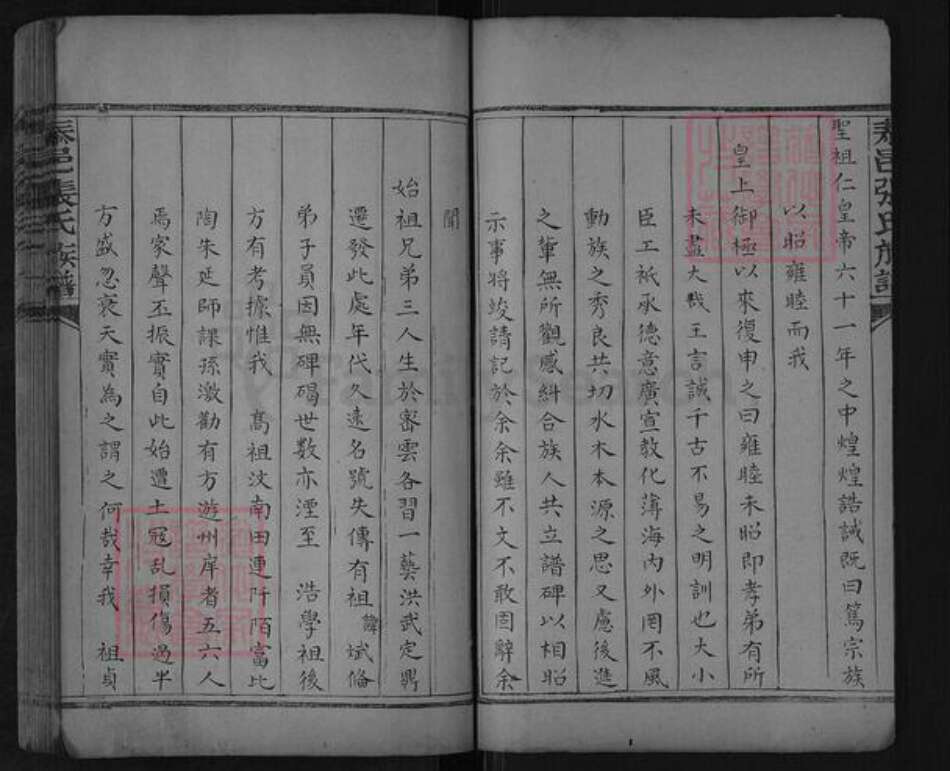 聖祖仁皇帝六十一年之中煌煌誥誡既曰篤宗族
以昭雍睦而我
皇上御極以來復申之曰雍睦未昭即孝弟有所
未盡大哉王言誠千古不易之明訓也大小
臣工祗承德意廣宣教化薄海內外罔不風
動族之秀良共切水木本源之思又慮後進
之輩無所觀感糾合族人共立譜碑以相昭
示事將竣請記於余余雖不文不敢固辭余
聞
始祖兄弟三人生於密雲各習一藝洪武定鼎
遷發此處年代久遠名號失傳有祖諱斌倫
弟子員因無碑碣世數亦湮至 浩學祖後
方有考據惟我 高祖汶南田連阡陌富比
陶朱延師課孫激勸有方遊州庠者五六人
焉家聲丕振實自此始遭土寇乱損傷過半
方盛忽衰天實為之謂之何哉幸我 祖貞
泰邑張氏族譜